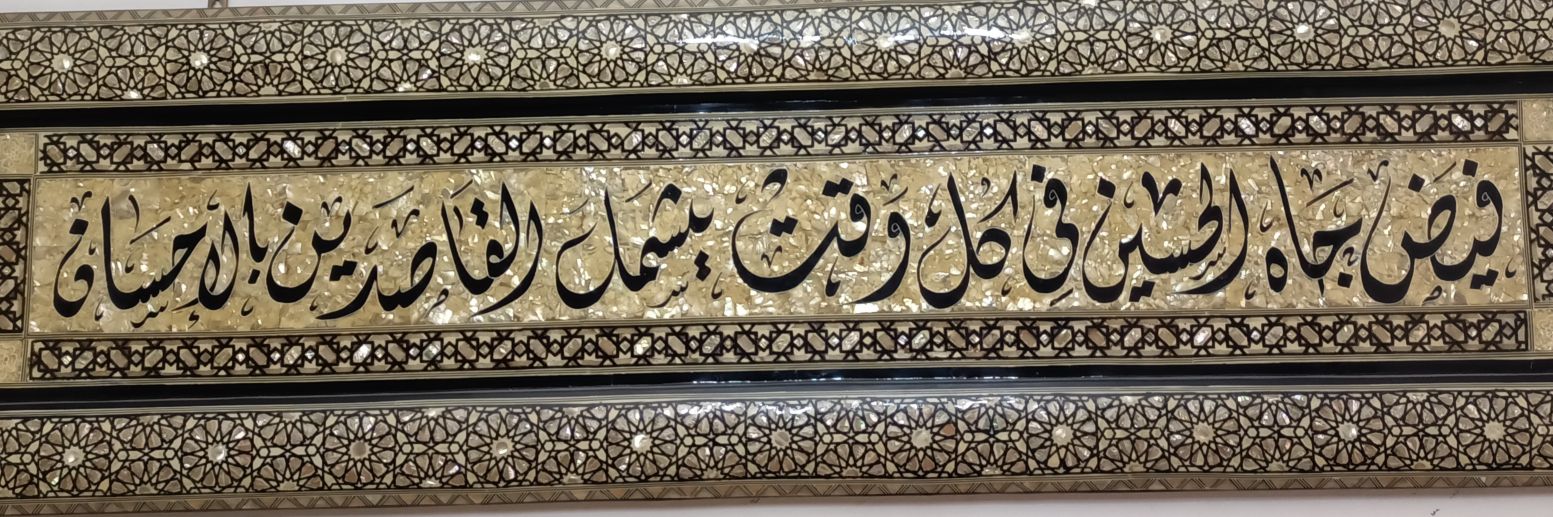 فيض جاه الحسين في كل وقت يشمل القاصدين بالإحسان